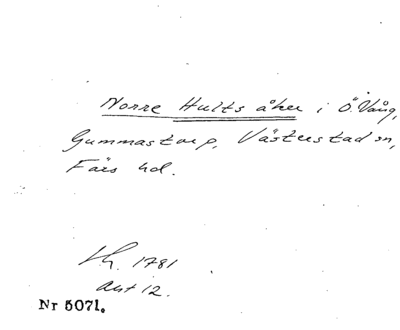 Norre Hults åker i Ö. Vång,
Gummastorp, Västerstad sn,
Färs hd.
Lh. 1781
akt 12.
Nr 5071.